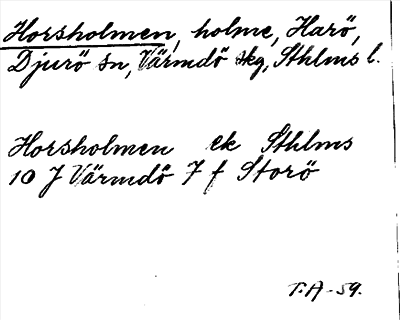 Horsholmen, holme, Harö,
Djurö sn, Värmdö skg, Sthlms l.
Horsholmen ek Sthlms
10 J Värmdö 7 f Storö
T.A-59.